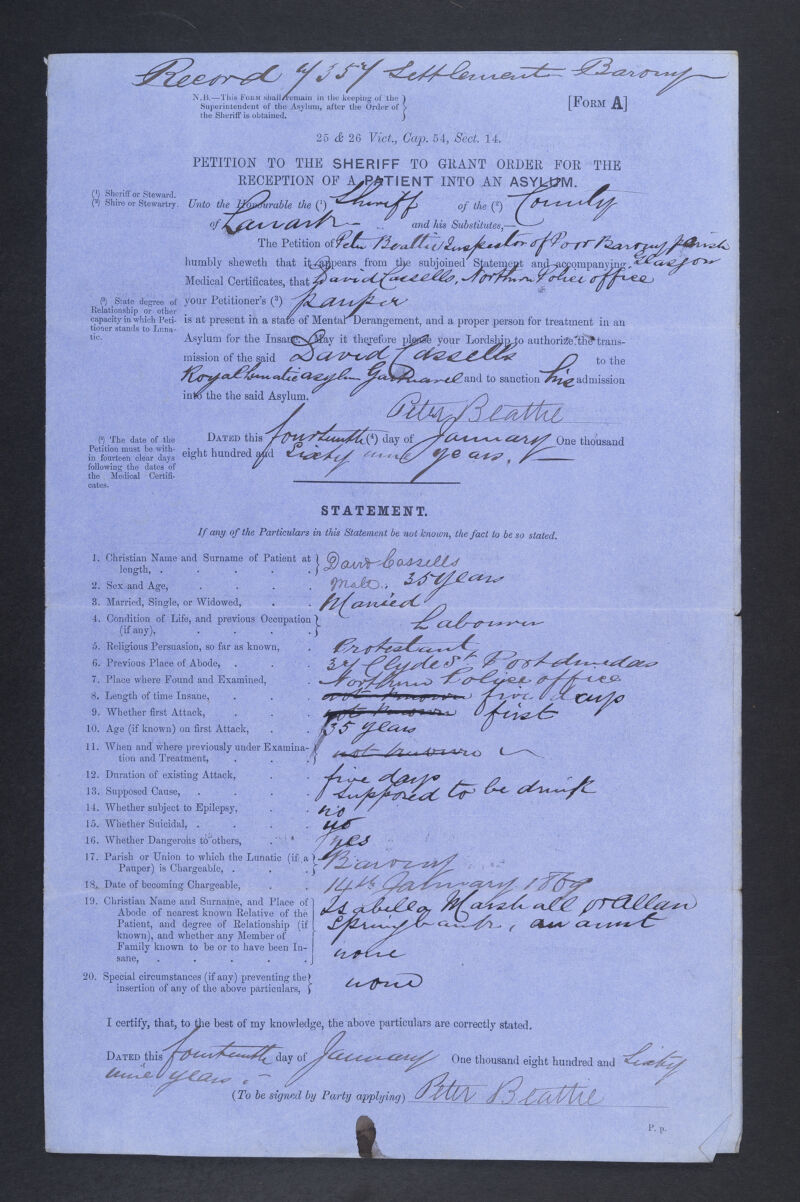 Record Settlement Barony
N.B.—This Form shall remain in the keeping of the
Superintendent of the Asylum, after the Order of
the Sheriff is obtained.
[Form A]
25 & 26 Vict., Cap. 54, Sect. 14.
PETITION TO THE SHERIFF TO GRANT ORDER FOR THE
RECEPTION OF A PATIENT INTO AN ASYLUM.
(¹) Sheriff or Steward.
(²) Shire or Stewartry.
Unto the Honourable the (¹) Sheriff of the (²) County
of Lanark and his Substitutes,—
The Petition of Peter Beattie Inspector of Poor Barony Parish
Glasgow
humbly sheweth that it appears from the subjoined Statement and accompanying
Medical Certificates, that David Cassells, Northern Police office
(³) State degree of
Relationship or other
capacity in which Peti-
tioner stands to Luna-
tic.
your Petitioner's (³) pauper
is at present in a state of Mental Derangement, and a proper person for treatment in an
Asylum for the Insane. May it therefore please your Lordship to authorize the trans-
mission of the said David Cassells to the
Royal Lunatic asylum Gartnavel and to sanction his admission
into the the said Asylum.
Peter Beattie
(⁴) The date of the
Petition must be with-
in fourteen clear days
following the dates of
the Medical Certifi-
cates.
Dated this fourteenth (⁴) day of January One thousand
eight hundred and Sixty nine years.
STATEMENT.
If any of the Particulars in this Statement be not known, the fact to be so stated.
1. Christian Name and Surname of Patient at
length, . David Cassells
2. Sex and Age, Male. 35 years
3. Married, Single, or Widowed, Married
4. Condition of Life, and previous Occupation
(if any), Labourer
5. Religious Persuasion, so far as known, Protestant
6. Previous Place of Abode, Clyde St Port dundas
7. Place where Found and Examined, Northern Police office
8. Length of time Insane, not known five days
9. Whether first Attack, not known first
10. Age (if known) on first Attack, 35 years
11. When and where previously under Examina-
tion and Treatment, not known
12. Duration of existing Attack, five days
13. Supposed Cause, supposed to be drink
14. Whether subject to Epilepsy, no
15. Whether Suicidal,
16. Whether Dangerous to others, yes
17. Parish or Union to which the Lunatic (if a
Pauper) is Chargeable, Barony
18. Date of becoming Chargeable, 14th January 1869
19. Christian Name and Surname, and Place of
Abode of nearest known Relative of the
Patient, and degree of Relationship (if
known), and whether any Member of
Family known to be or to have been In-
sane,
Isabella Marshall or Allan
Springbank, an aunt
none
20. Special circumstances (if any) preventing the
insertion of any of the above particulars, none
I certify, that, to the best of my knowledge, the above particulars are correctly stated.
Dated this fourteenth day of January One thousand eight hundred and Sixty
nine years.
(To be signed by Party applying) Peter Beattie
P. p.